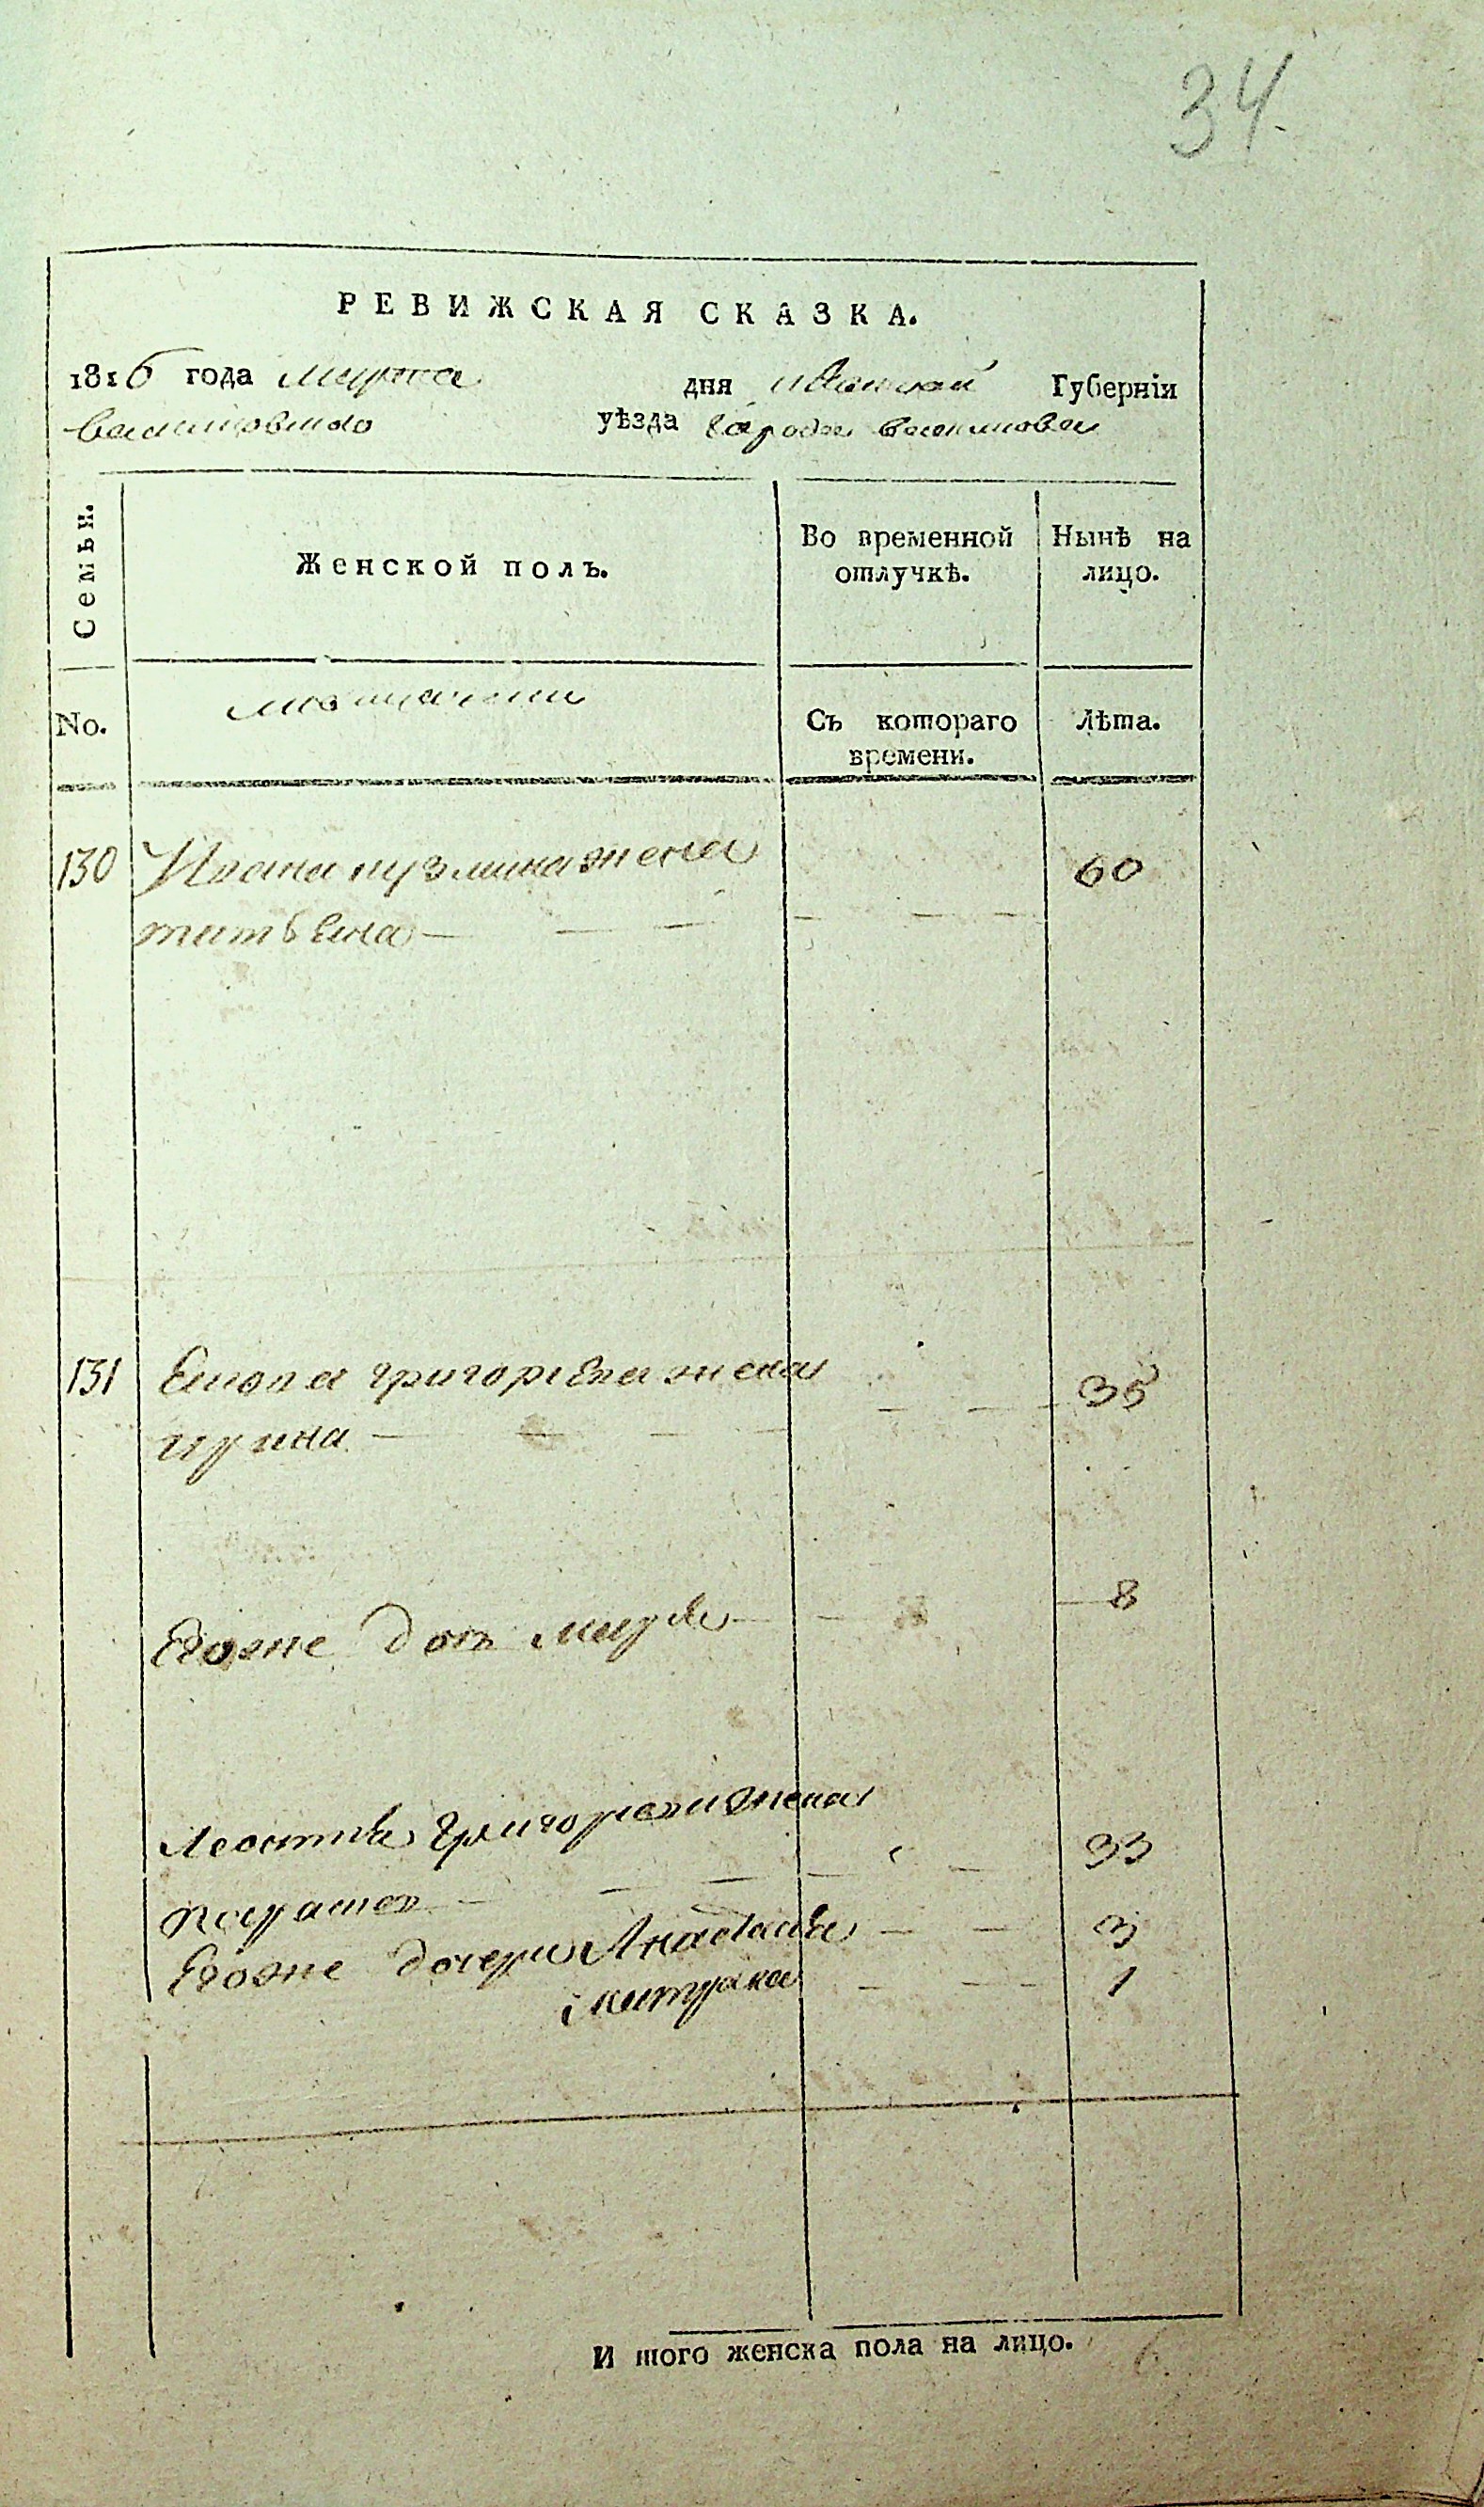 34.
РЕВИЖСКАЯ СКАЗКА.
1816 года марта дня Киевской Губерніи
василковского уѣзда города василкова
Семьи.
Женской полъ.
Во временной отлучкѣ.
Нынѣ на лицо.
No.
мещанеи
Съ котораго времени.
лѣта.
130 Ивана кузмина жена 60
татьяна
131 григорьева жена 35
ирина
Егоже доч марья 8
Леонтия григорьева жена 33
параскев
Егоже дочери Анастасия 3
і катрина 1
И того женска пола на лицо. 6.